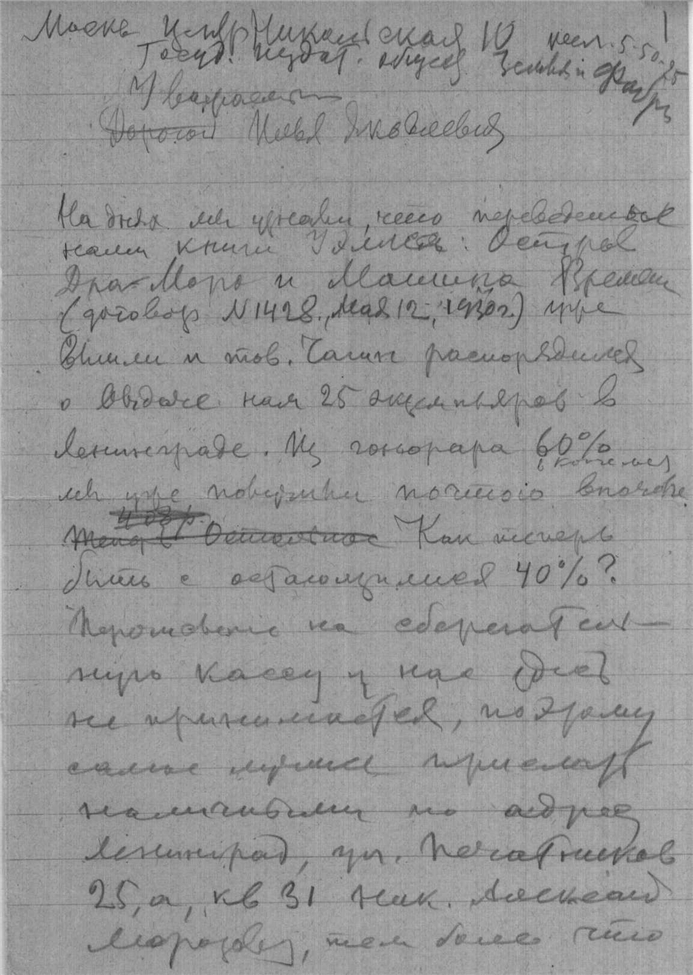 1
Москв Никольская 10 5-50-25
Госуд. издат. общая Земля и Фабр
Уважаемы
Дорогой Илья Яковлевич
На днях мы узнали, что переведенные
нами книги Уэллса: Остров
Д-ра Моро и Машина Времени
(договор N 1428, Мая 12, 1930 г.) уже
вышли и тов. Чагин распорядился
о выдаче нам 25 экземпляров в
Ленинграде. Из гонорара 60%
мы уже получили почтою
Как теперь
быть с остающимися 40%?
на сберегатель-
ную кассу у нас здесь
не принимается, поэтому
самое лучшее прислать
наличными по адресу
Ленинград, ул. Печатников
25, а, кв 31 Ник. Александ
Морозову, тем более что